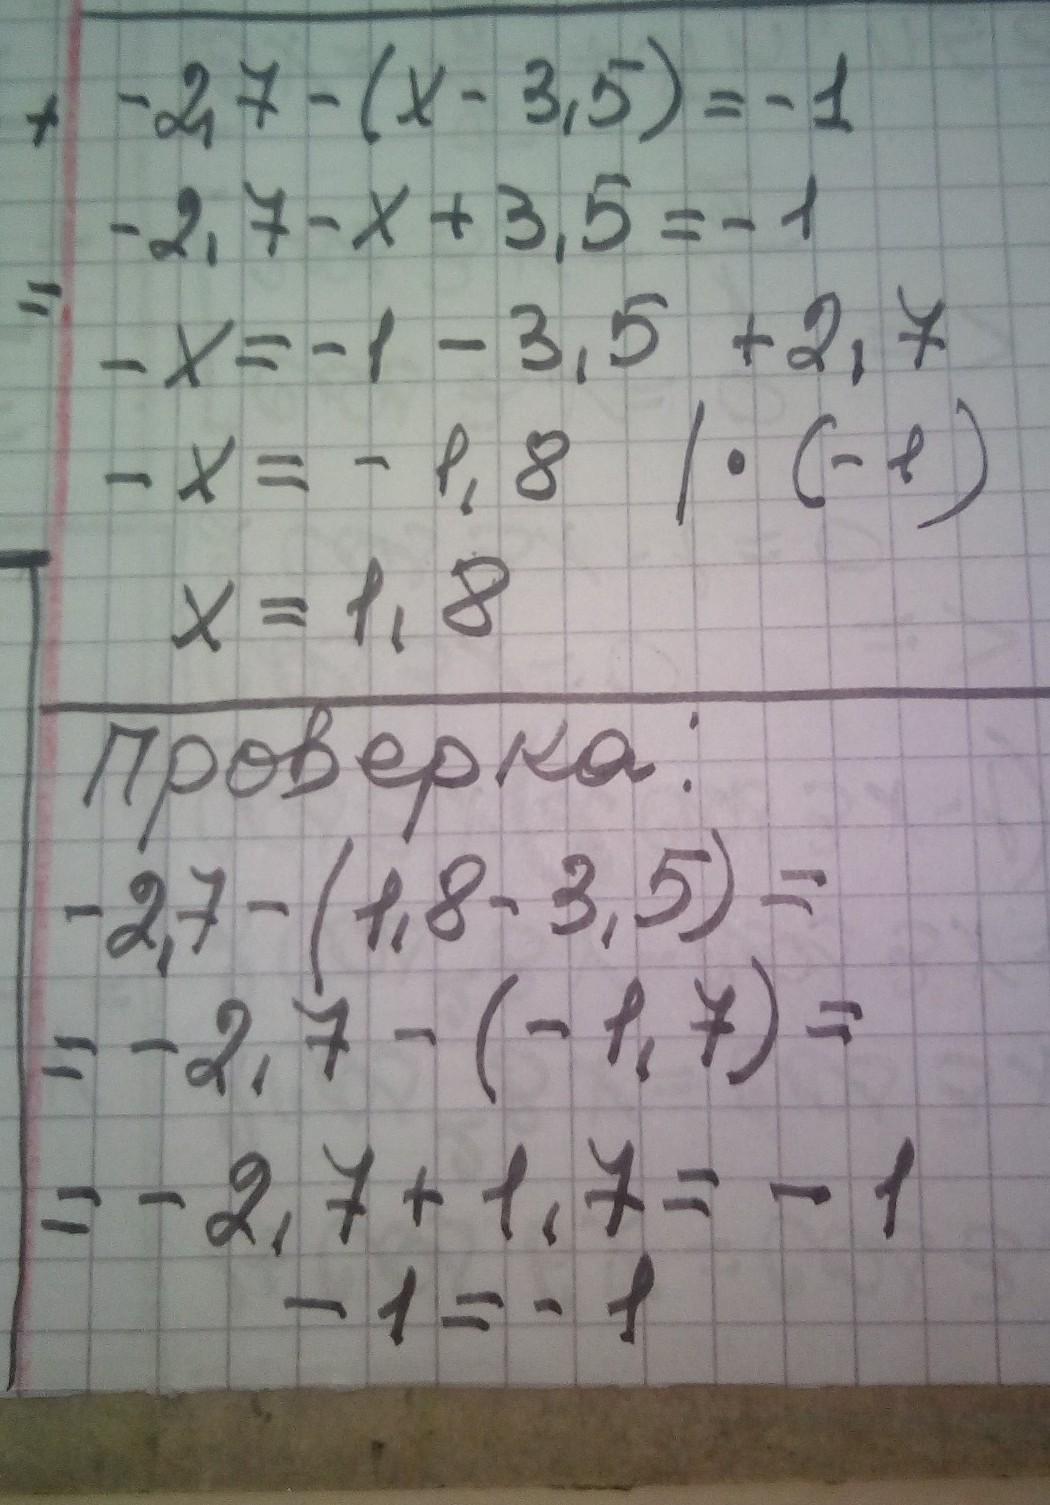 + -2,7-(x-3,5)=-1
-2,7-x+3,5=-1
=
-x=-1-3,5 +2,7
-x=-1,8 |·(-1)
x=1,8
Проверка:
-2,7-(1,8-3,5)=
=-2,7-(-1,7)=
=-2,7+1,7=-1
-1=-1